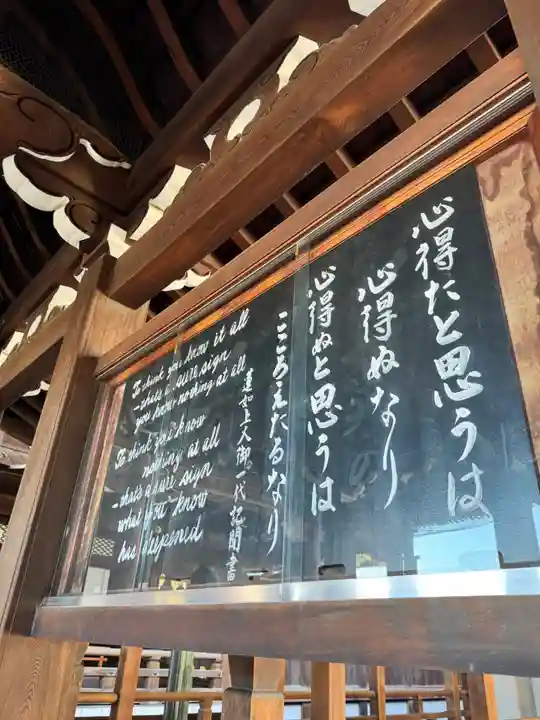 心得たと思うは
心得ぬなり
心得ぬと思うは
こころえたるなり
蓮如上人御一代記聞書
To think you know it all
-that's a sure sign
you know nothing at all
To think you know
nothing at all
-that's a sure sign
what you know
has deepened